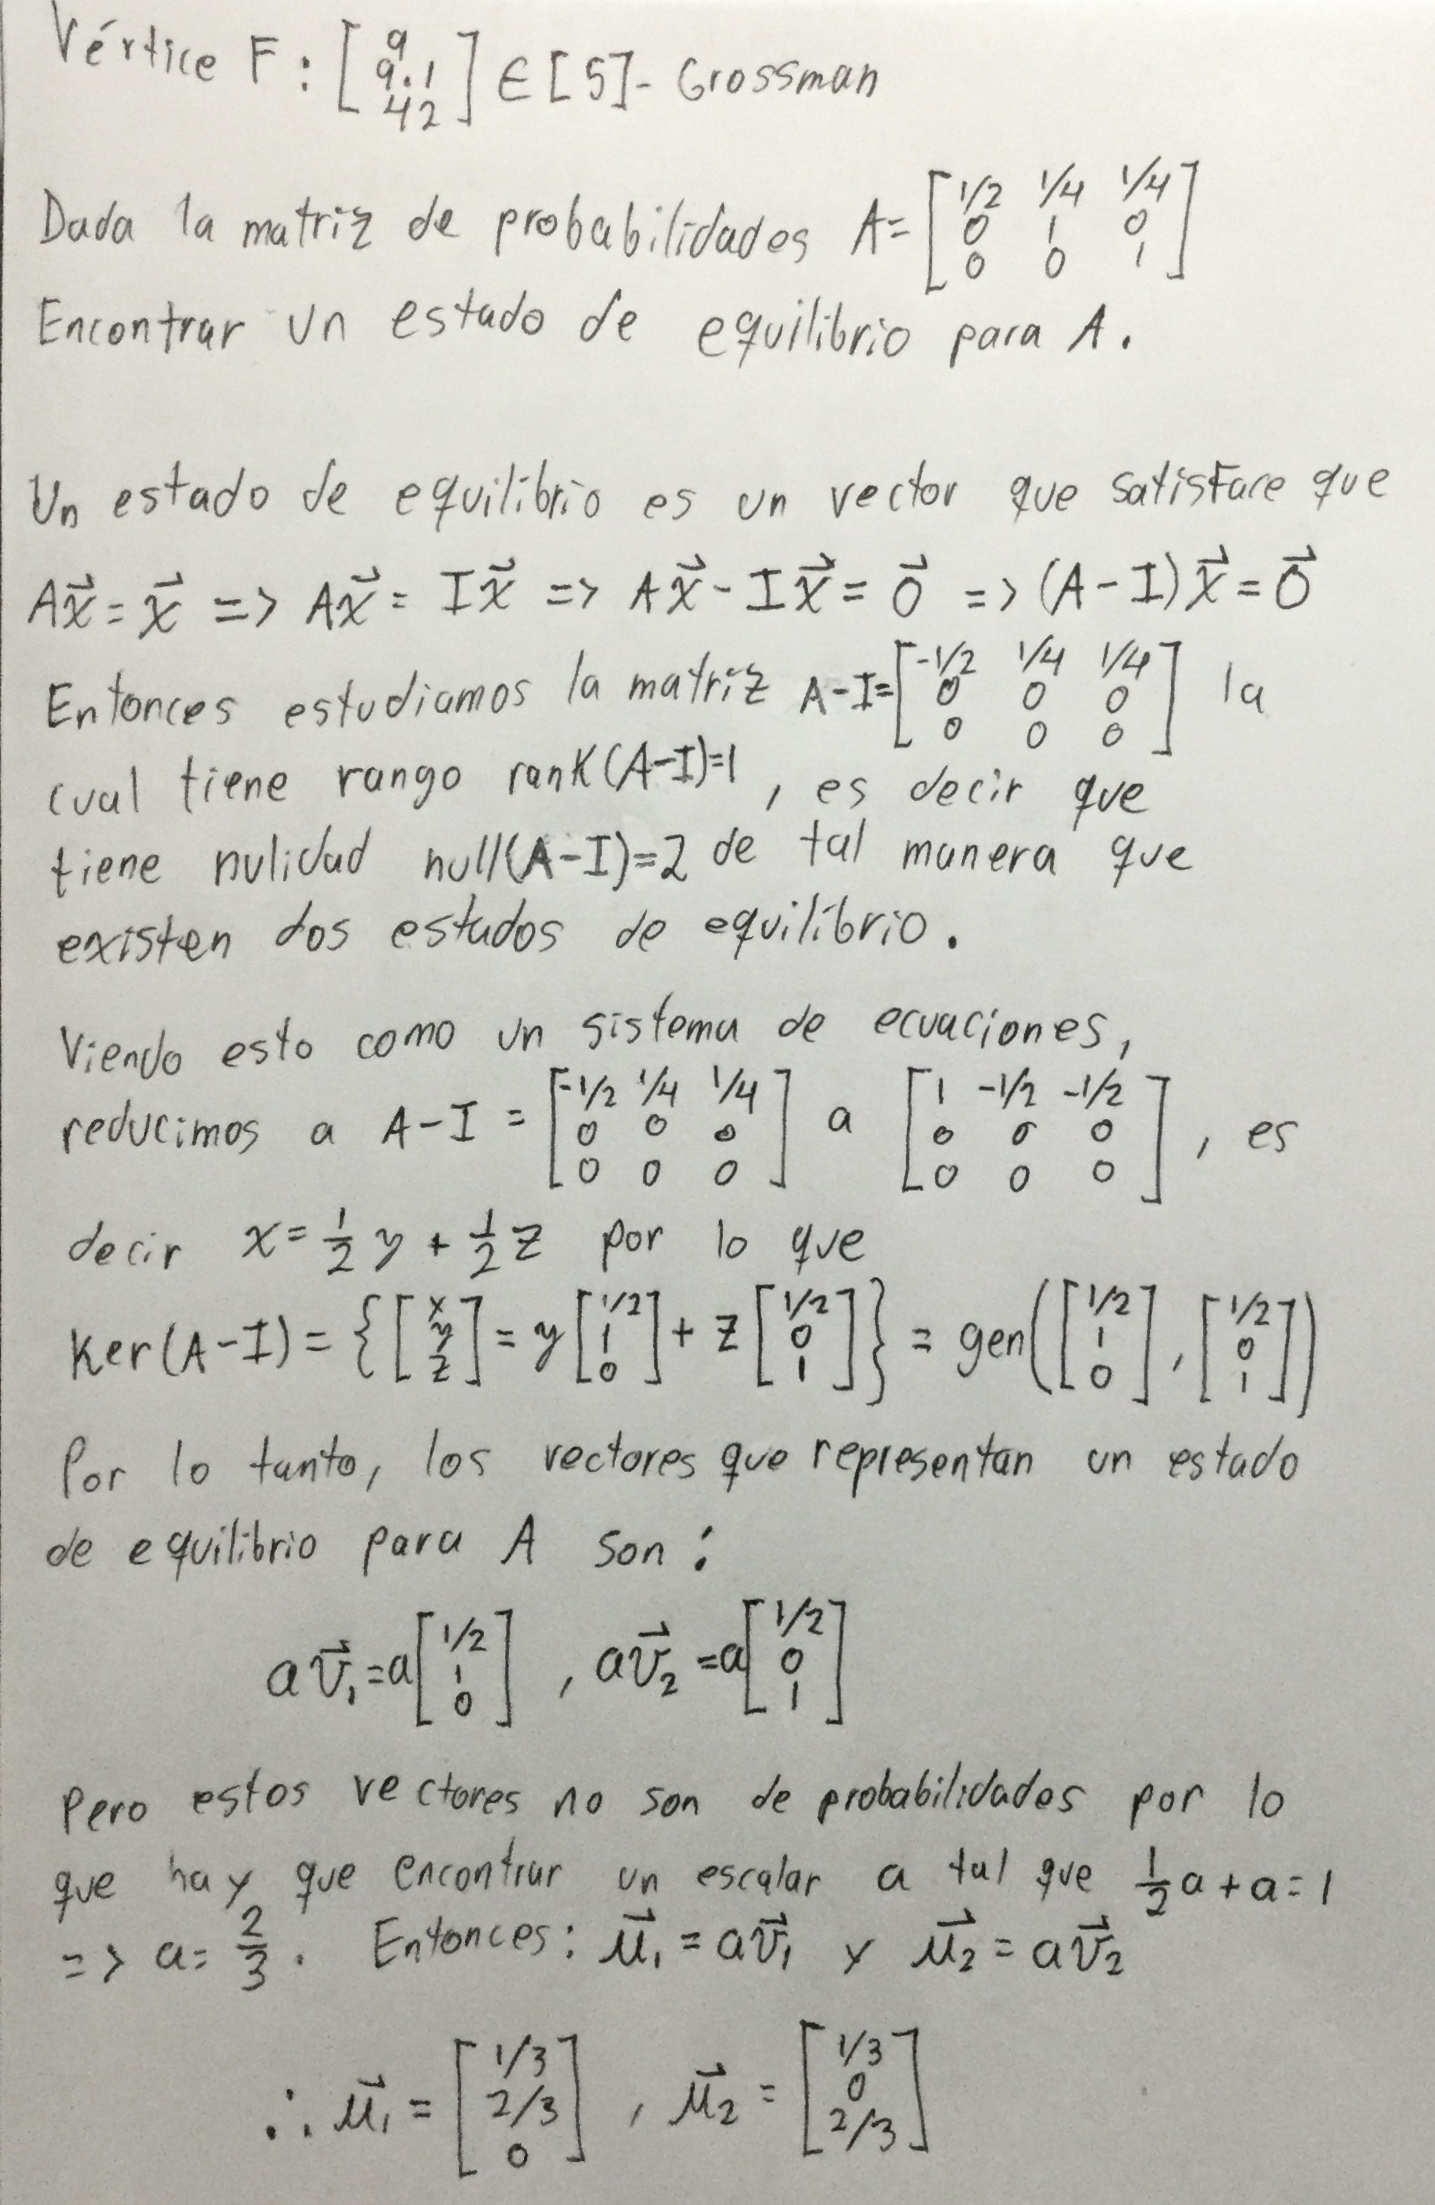 Vértice F: [9 9.1 42] ∈ [5]- Grossman
Dada la matriz de probabilidades A= [1/2 1/4 1/4; 0 1 0; 0 0 1]
Encontrar un estado de equilibrio para A.
Un estado de equilibrio es un vector que satisface que
Ax⃗ = x⃗ => Ax⃗ = Ix⃗ => Ax⃗ - Ix⃗ = 0⃗ => (A-I)x⃗ = 0⃗
Entonces estudiamos la matriz A-I= [-1/2 1/4 1/4; 0 0 0; 0 0 0] la
cual tiene rango rank(A-I)=1, es decir que
tiene nulidad null(A-I)=2 de tal manera que
existen dos estados de equilibrio.
Viendo esto como un sistema de ecuaciones,
reducimos a A-I = [-1/2 1/4 1/4; 0 0 0; 0 0 0] a [1 -1/2 -1/2; 0 0 0; 0 0 0], es
decir x = 1/2 y + 1/2 z por lo que
Ker(A-I) = {[x y z] = y[1/2 1 0] + z[1/2 0 1]} = gen([1/2 1 0], [1/2 0 1])
Por lo tanto, los vectores que representan un estado
de equilibrio para A son:
av⃗₁ = a[1/2 1 0], av⃗₂ = a[1/2 0 1]
Pero estos vectores no son de probabilidades por lo
que hay que encontrar un escalar a tal que 1/2 a + a = 1
=> a = 2/3. Entonces: μ⃗₁ = av⃗₁ y μ⃗₂ = av⃗₂
∴ μ⃗₁ = [1/3 2/3 0], μ⃗₂ = [1/3 0 2/3]